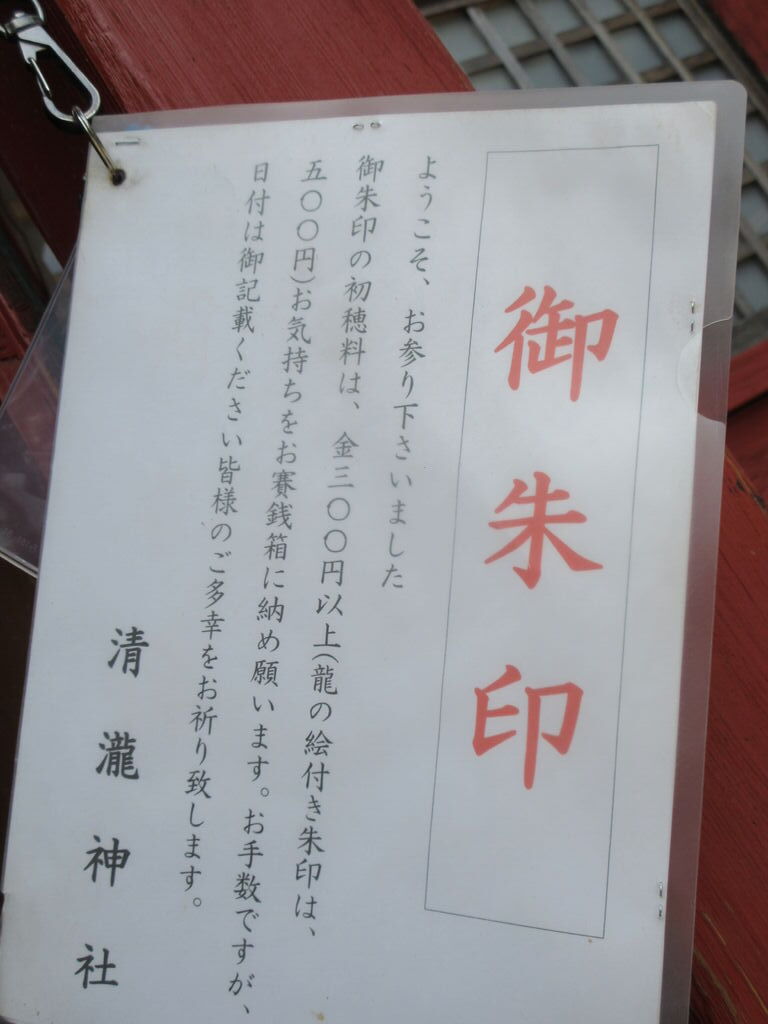 御朱印
ようこそ、お参り下さいました
御朱印の初穂料は、金三〇〇円以上(龍の絵付き朱印は、
五〇〇円)お気持ちをお賽銭箱に納め願います。お手数ですが、
日付は御記載ください皆様のご多幸をお祈り致します。
清瀧神社